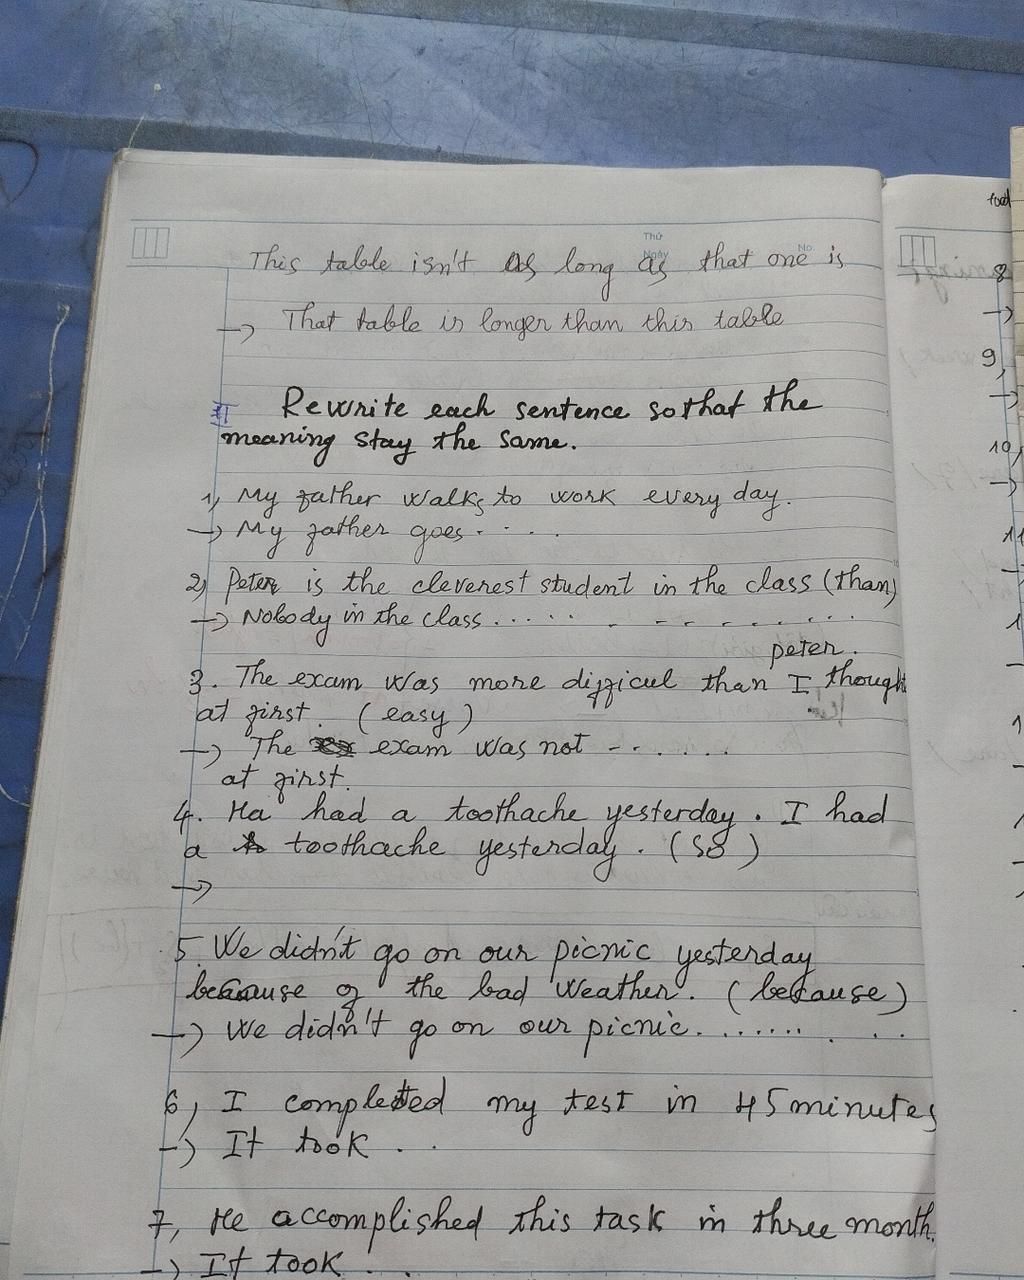 Thứ
Ngày
No.
This table isn't as long as that one is
→ That table is longer than this table
II Rewrite each sentence so that the
meaning stay the same.
1, My father walks to work every day.
→ My father goes. . . .
2) Peter is the cleverest student in the class (than)
→ Nobody in the class . . . . . . . . . . . . . .
peter.
3. The exam was more difficul than I though
at first. (easy)
→ The exam was not - . . . . .
at first.
4. Ha had a toothache yesterday. I had
a toothache yesterday. (so)
→
5. We didn't go on our picnic yesterday
because of the bad weather. (because)
→ We didn't go on our picnic. . . . . . . . .
6, I completed my test in 45 minutes
→ It took . .
7, He accomplished this task in three month.
→ It took . .
8
→
9,
→
10,
→
11